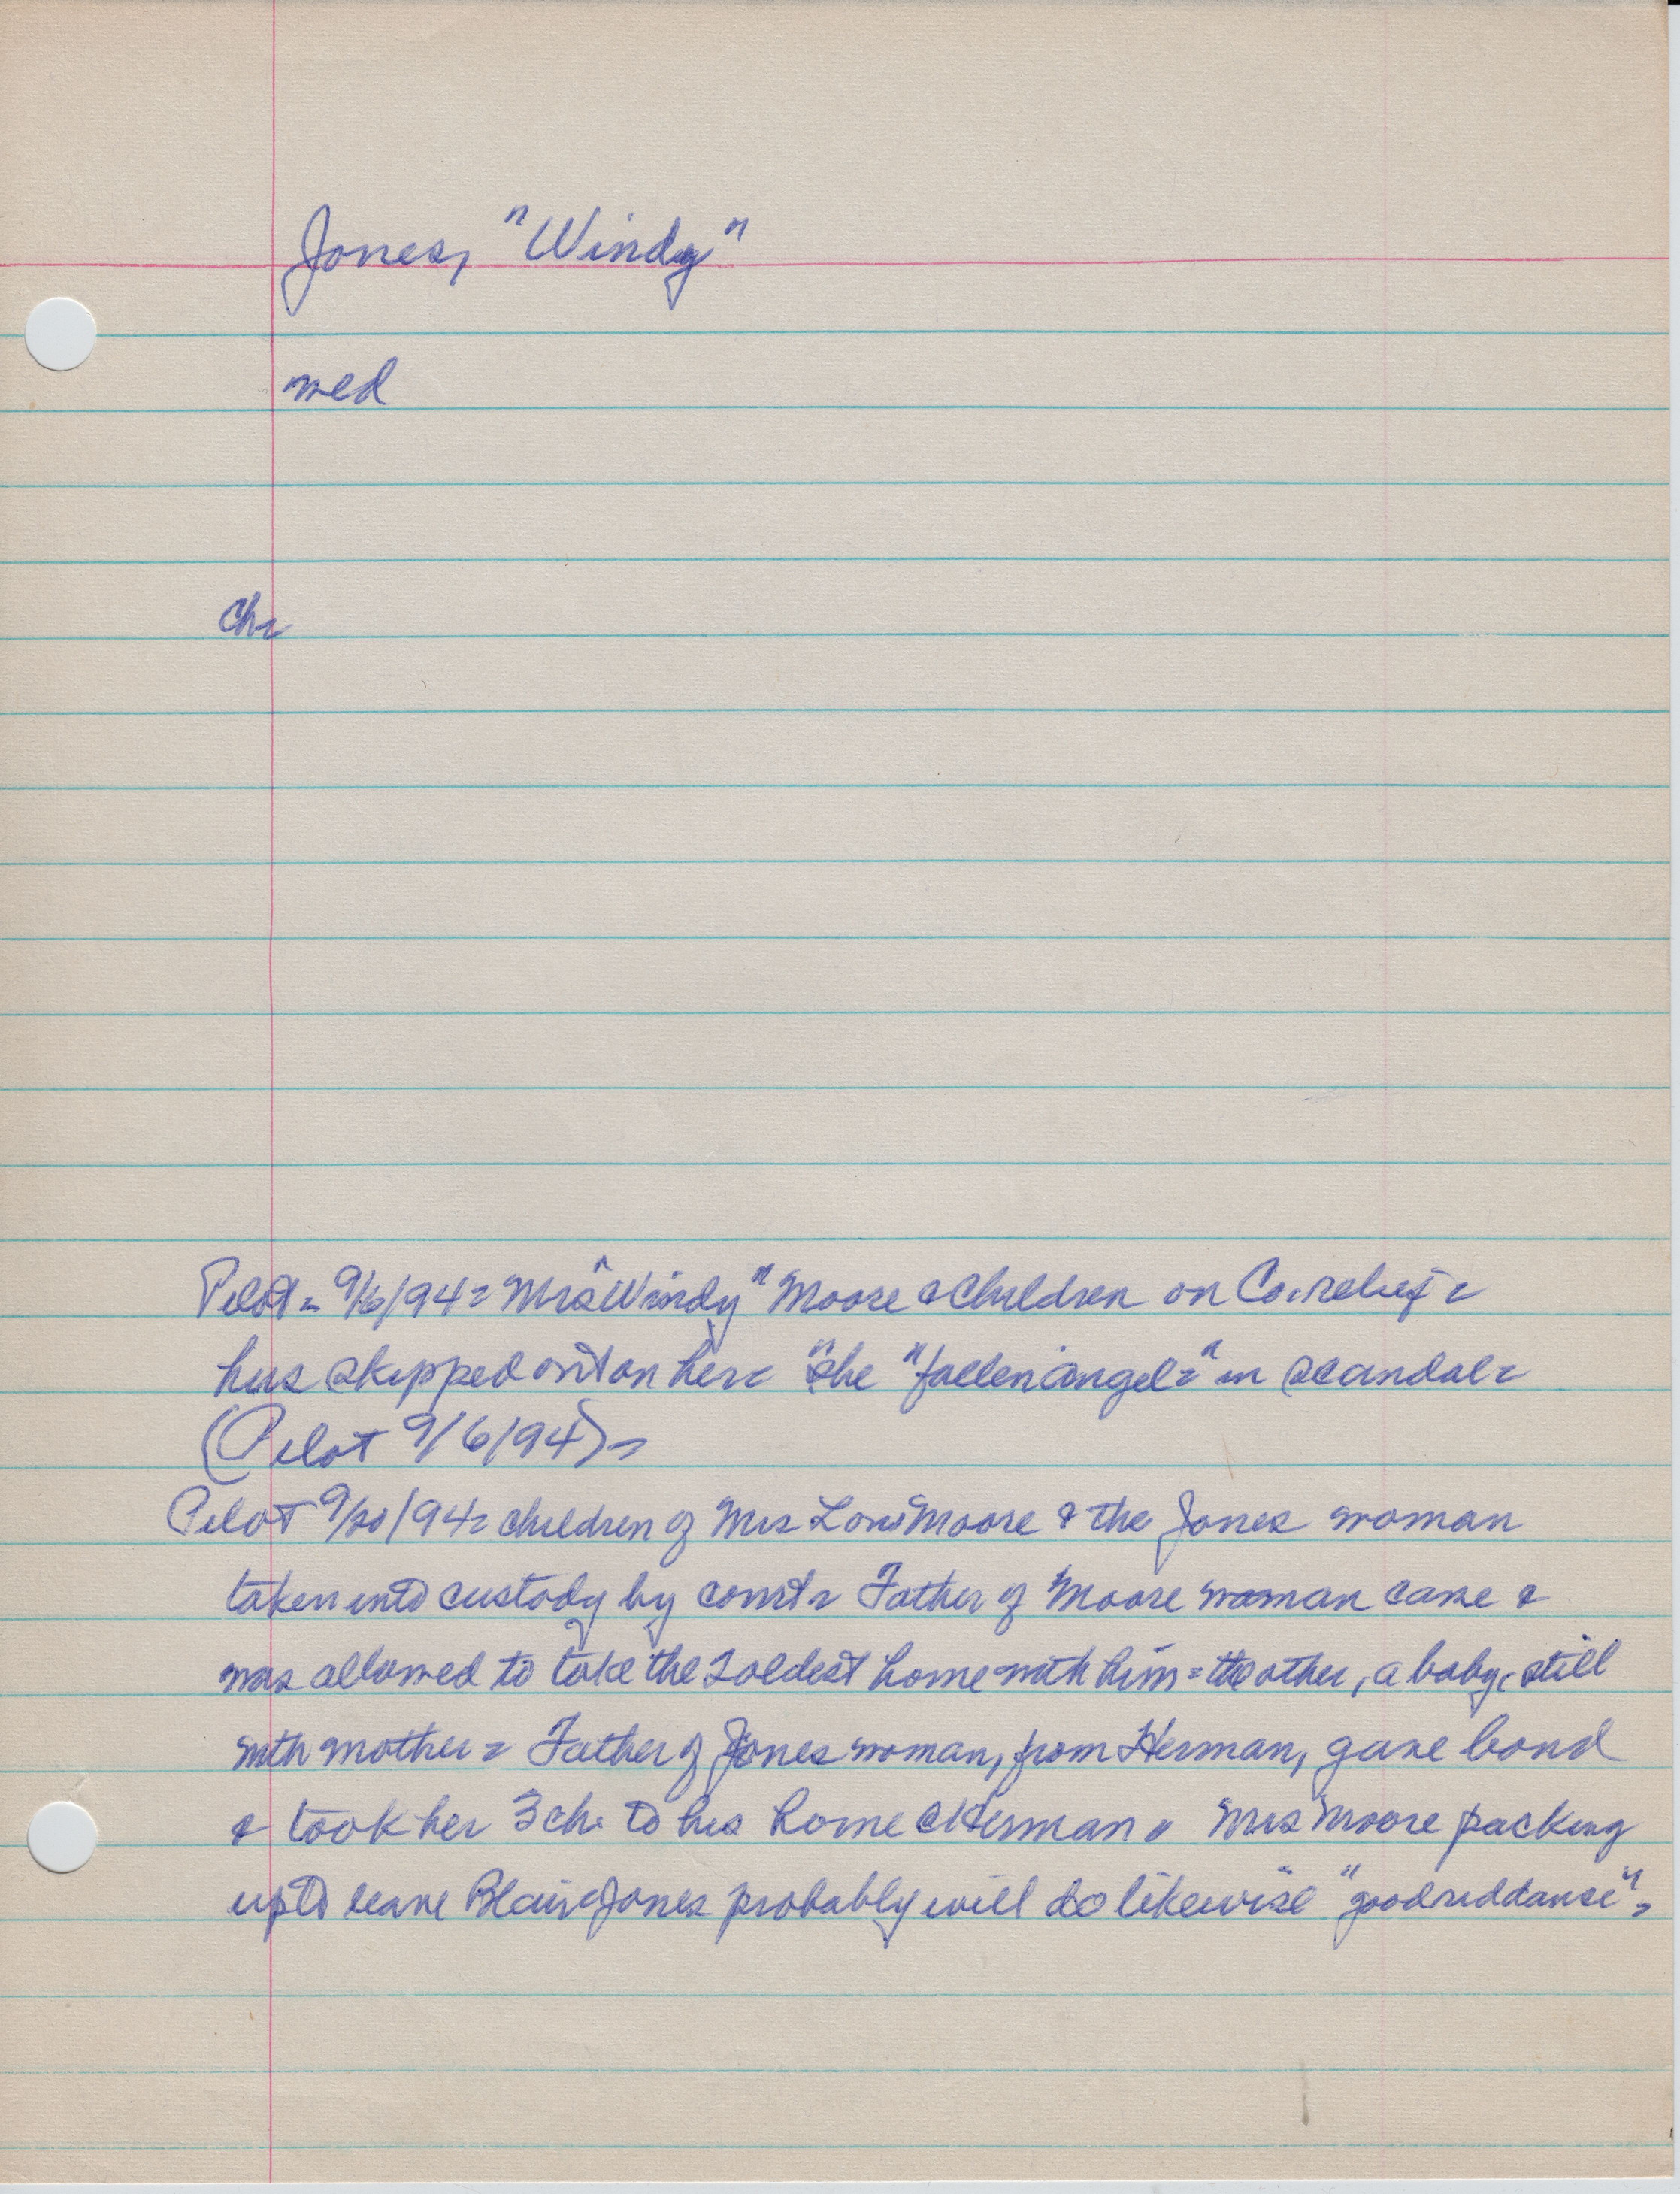 Jones, "Windy"
wed
Ch-
Pilot - 9/6/94 - Mrs "Windy" Moore & Children on Co. relief -
hus skipped out on her - she "fallen angel" in scandal -
(Pilot 9/6/94) -
Pilot 9/20/94 - children of Mrs Moore & the Jones woman
taken into custody by court - Father of Moore woman came &
was allowed to take the 2 oldest home with him - the other, a baby, still
with mother - Father of Jones woman, from Herman, gave bond
& took her 3 ch. to his home @ Herman - Mrs Moore packing
up to leave Blair & Jones probably will do likewise "good riddanse" -